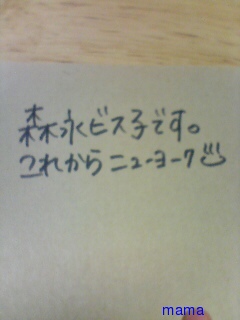 森永ビス子です。
これからニューヨーク
mama